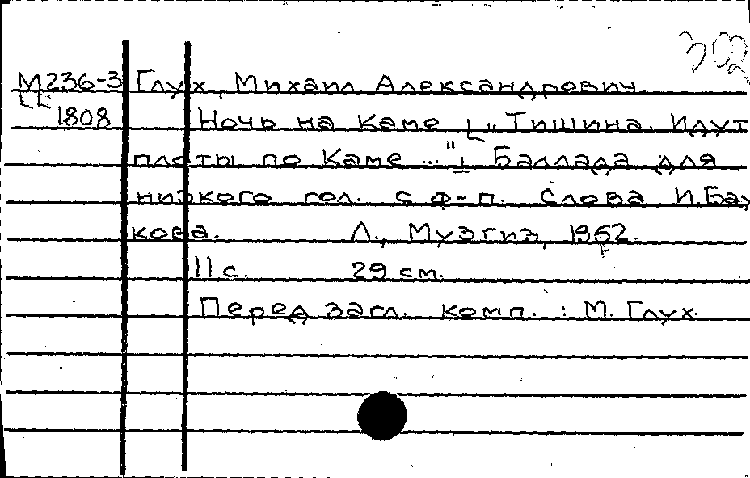 302
М236-3 Глух, Михаил Александрович.
1808 Ночь на Каме [„Тишина. Идут
плоты по Каме ..."] Баллада для
низкого гол. с ф-п. Слова И. Бау
кова. Л., Музгиз, 1962.
11 с. 29 см.
Перед загл. комп.: М. Глух.